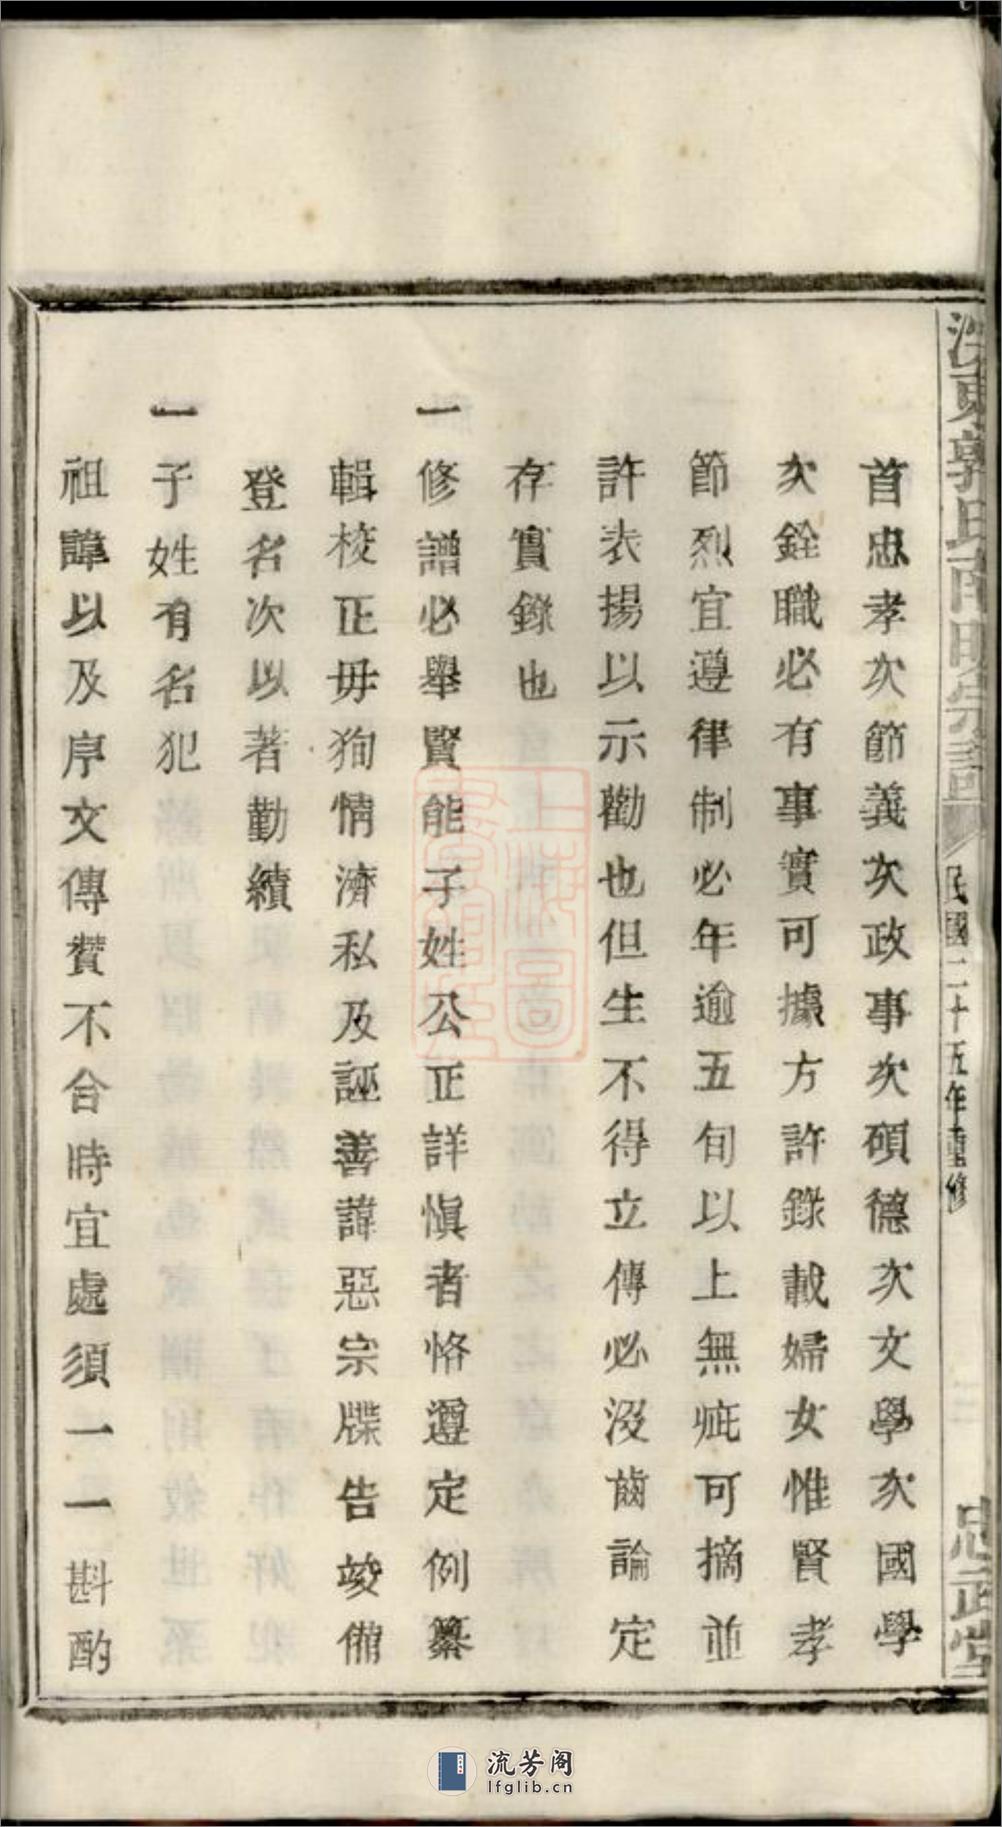 首忠孝次節義次政事次碩德次文學次國學
次銓職必有事實可據方許錄載婦女惟賢孝
節烈宜遵律制必年逾五旬以上無疵可摘並
許表揚以示勸也但生不得立傳必沒齒論定
存實錄也
一修譜必舉賢能子姓公正詳愼者恪遵定例纂
輯校正毋狥情濟私及誣善諱惡宗牒告竣備
登名次以著勤績
一子姓有名犯
祖諱以及序文傳贊不合時宜處須一一斟酌
民國二十五年重修
忠武堂
上海圖
流芳阁
lfglib.cn